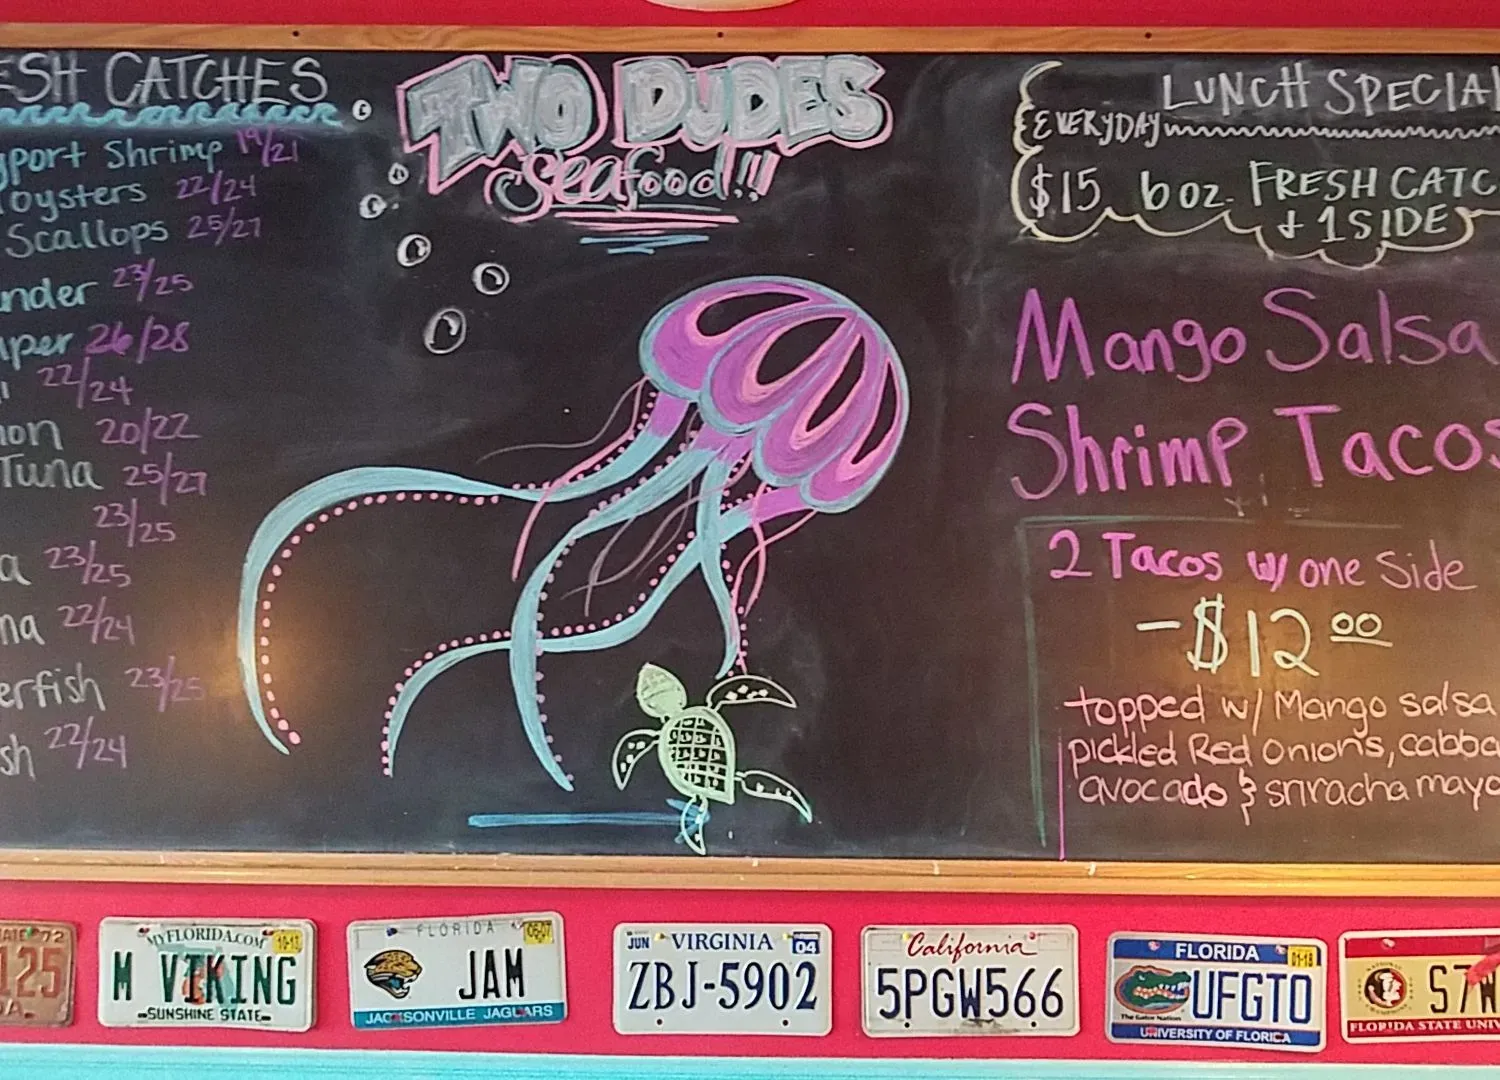 ESH CATCHES
yport Shrimp 19/21
oysters 22/24
Scallops 25/27
nder 23/25
per 26/28
i 22/24
on 20/22
Tuna 25/27
23/25
a 23/25
na 22/24
erfish 23/25
sh 22/24
TWO DUDES
Seafood!!!
LUNCH SPECIAL
EVERYDAY
$15 6 oz. FRESH CATC
+ 1 SIDE
Mango Salsa
Shrimp Tacos
2 Tacos w/ one Side
-$12.00
topped w/ Mango salsa
pickled Red Onions, cabba
avocado & sriracha mayo
72
125
MYFLORIDA.COM 10-13
M VIKING
SUNSHINE STATE
FLORIDA 06-07
JAM
JACKSONVILLE JAGUARS
JUN VIRGINIA 04
ZBJ-5902
California
5PGW566
FLORIDA 01-18
UFGTO
The Gator Nation
UNIVERSITY OF FLORIDA
S7W
FLORIDA STATE UNIV